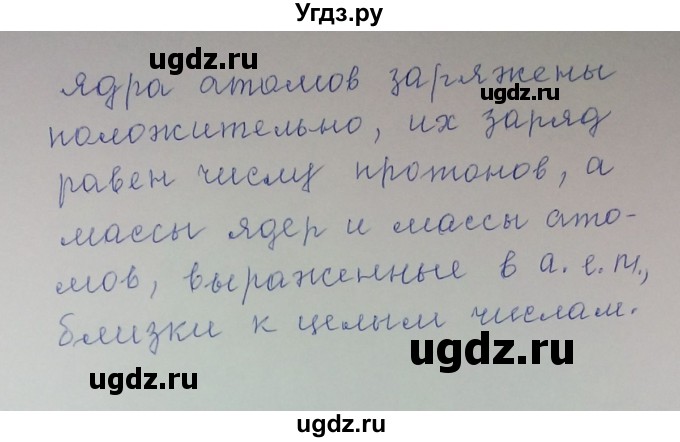 Угдз.ру
ugdz.ru
ядра атомов заряжены
ugdz.ru
положительно, их заряд
равен числу протонов, а
массы ядер и массы ато-
мов, выраженные в а.е.м.,
близки к целым числам.
ugdz.ru
ugdz.ru
ugdz.ru